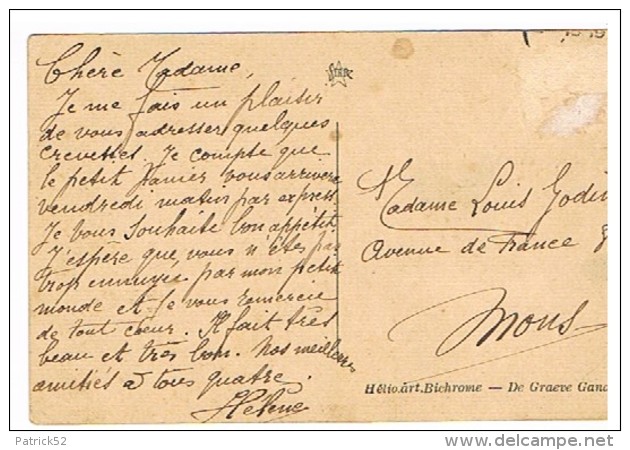 Chère Madame,
Je me fais un plaisir
de vous adresser quelques
crevettes. Je compte que
le petit panier vous arrivera
vendredi matin par express.
Je vous souhaite bon appétit.
J'espère que vous n'êtes pas
trop ennuyée par mon petit
monde et je vous remercie
de tout coeur. Il fait très
beau et très bon. Nos meilleures
amitiés à tous quatre.
Hélène
Star
Madame Louis Godin
Avenue de France
Mons
Hélio.art.Bichrome — De Graeve Gand
Patrick52
www.delcampe.net